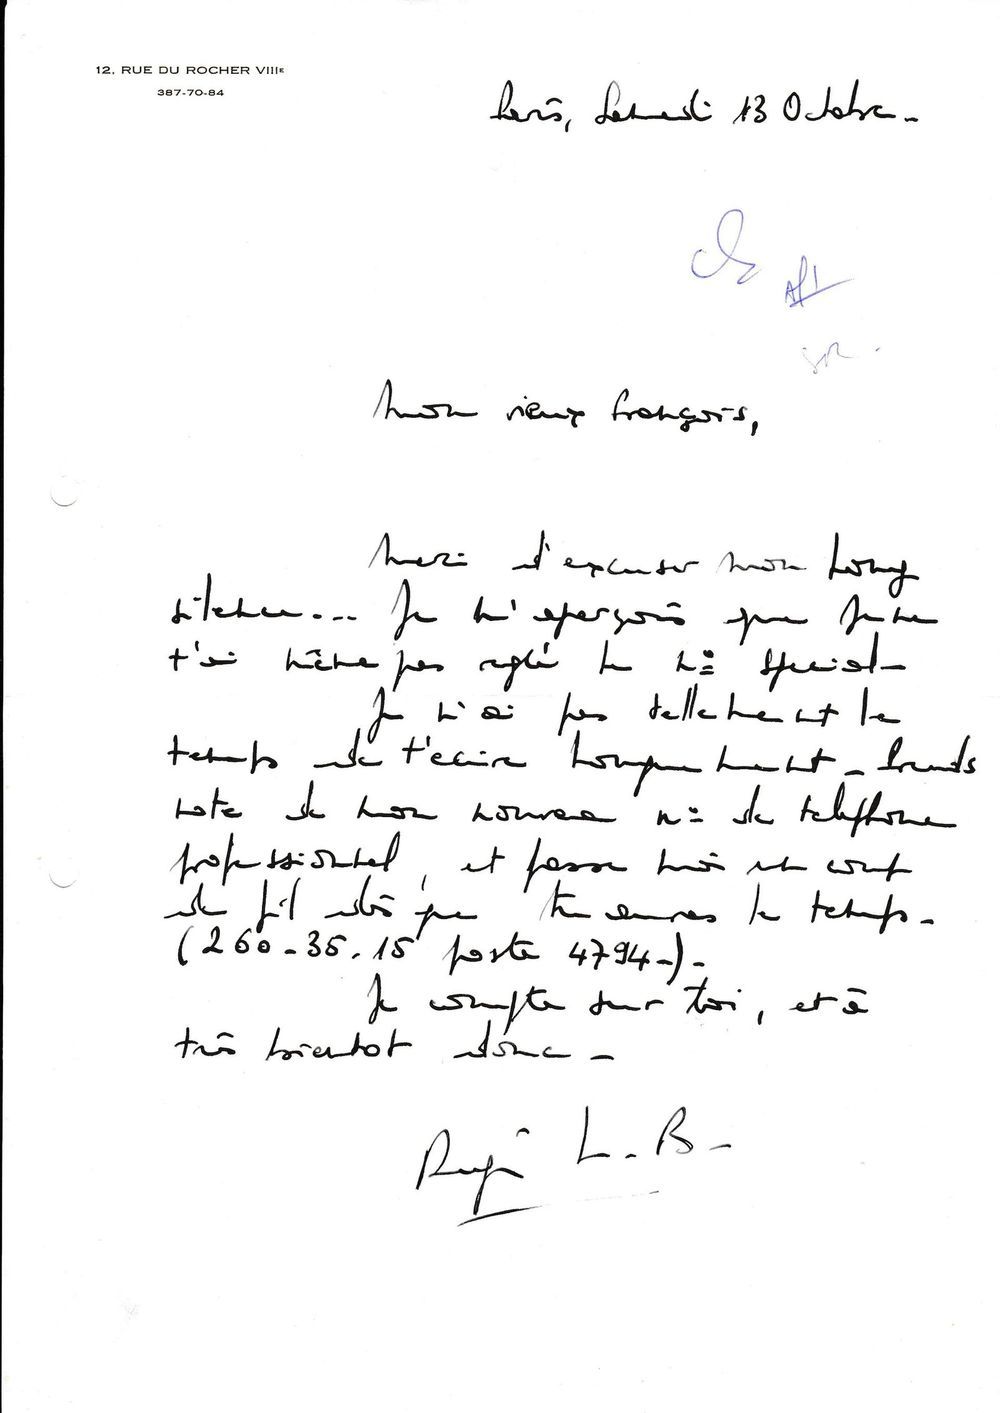 12, RUE DU ROCHER VIIIE
387-70-84
Paris, Samedi 13 Octobre -
Mon vieux François,
Merci d'excuser mon long
silence... Je m'aperçois que je ne
t'ai même pas réglé le no spécial -
Je n'ai pas tellement le
temps de t'écrire longuement - Prends
note de mon nouveau no de téléphone
professionnel, et passe moi un coup
de fil dès que tu auras le temps -
(260-35.15 poste 4794-) -
Je compte sur toi, et à
très bientot donc -
L. B -